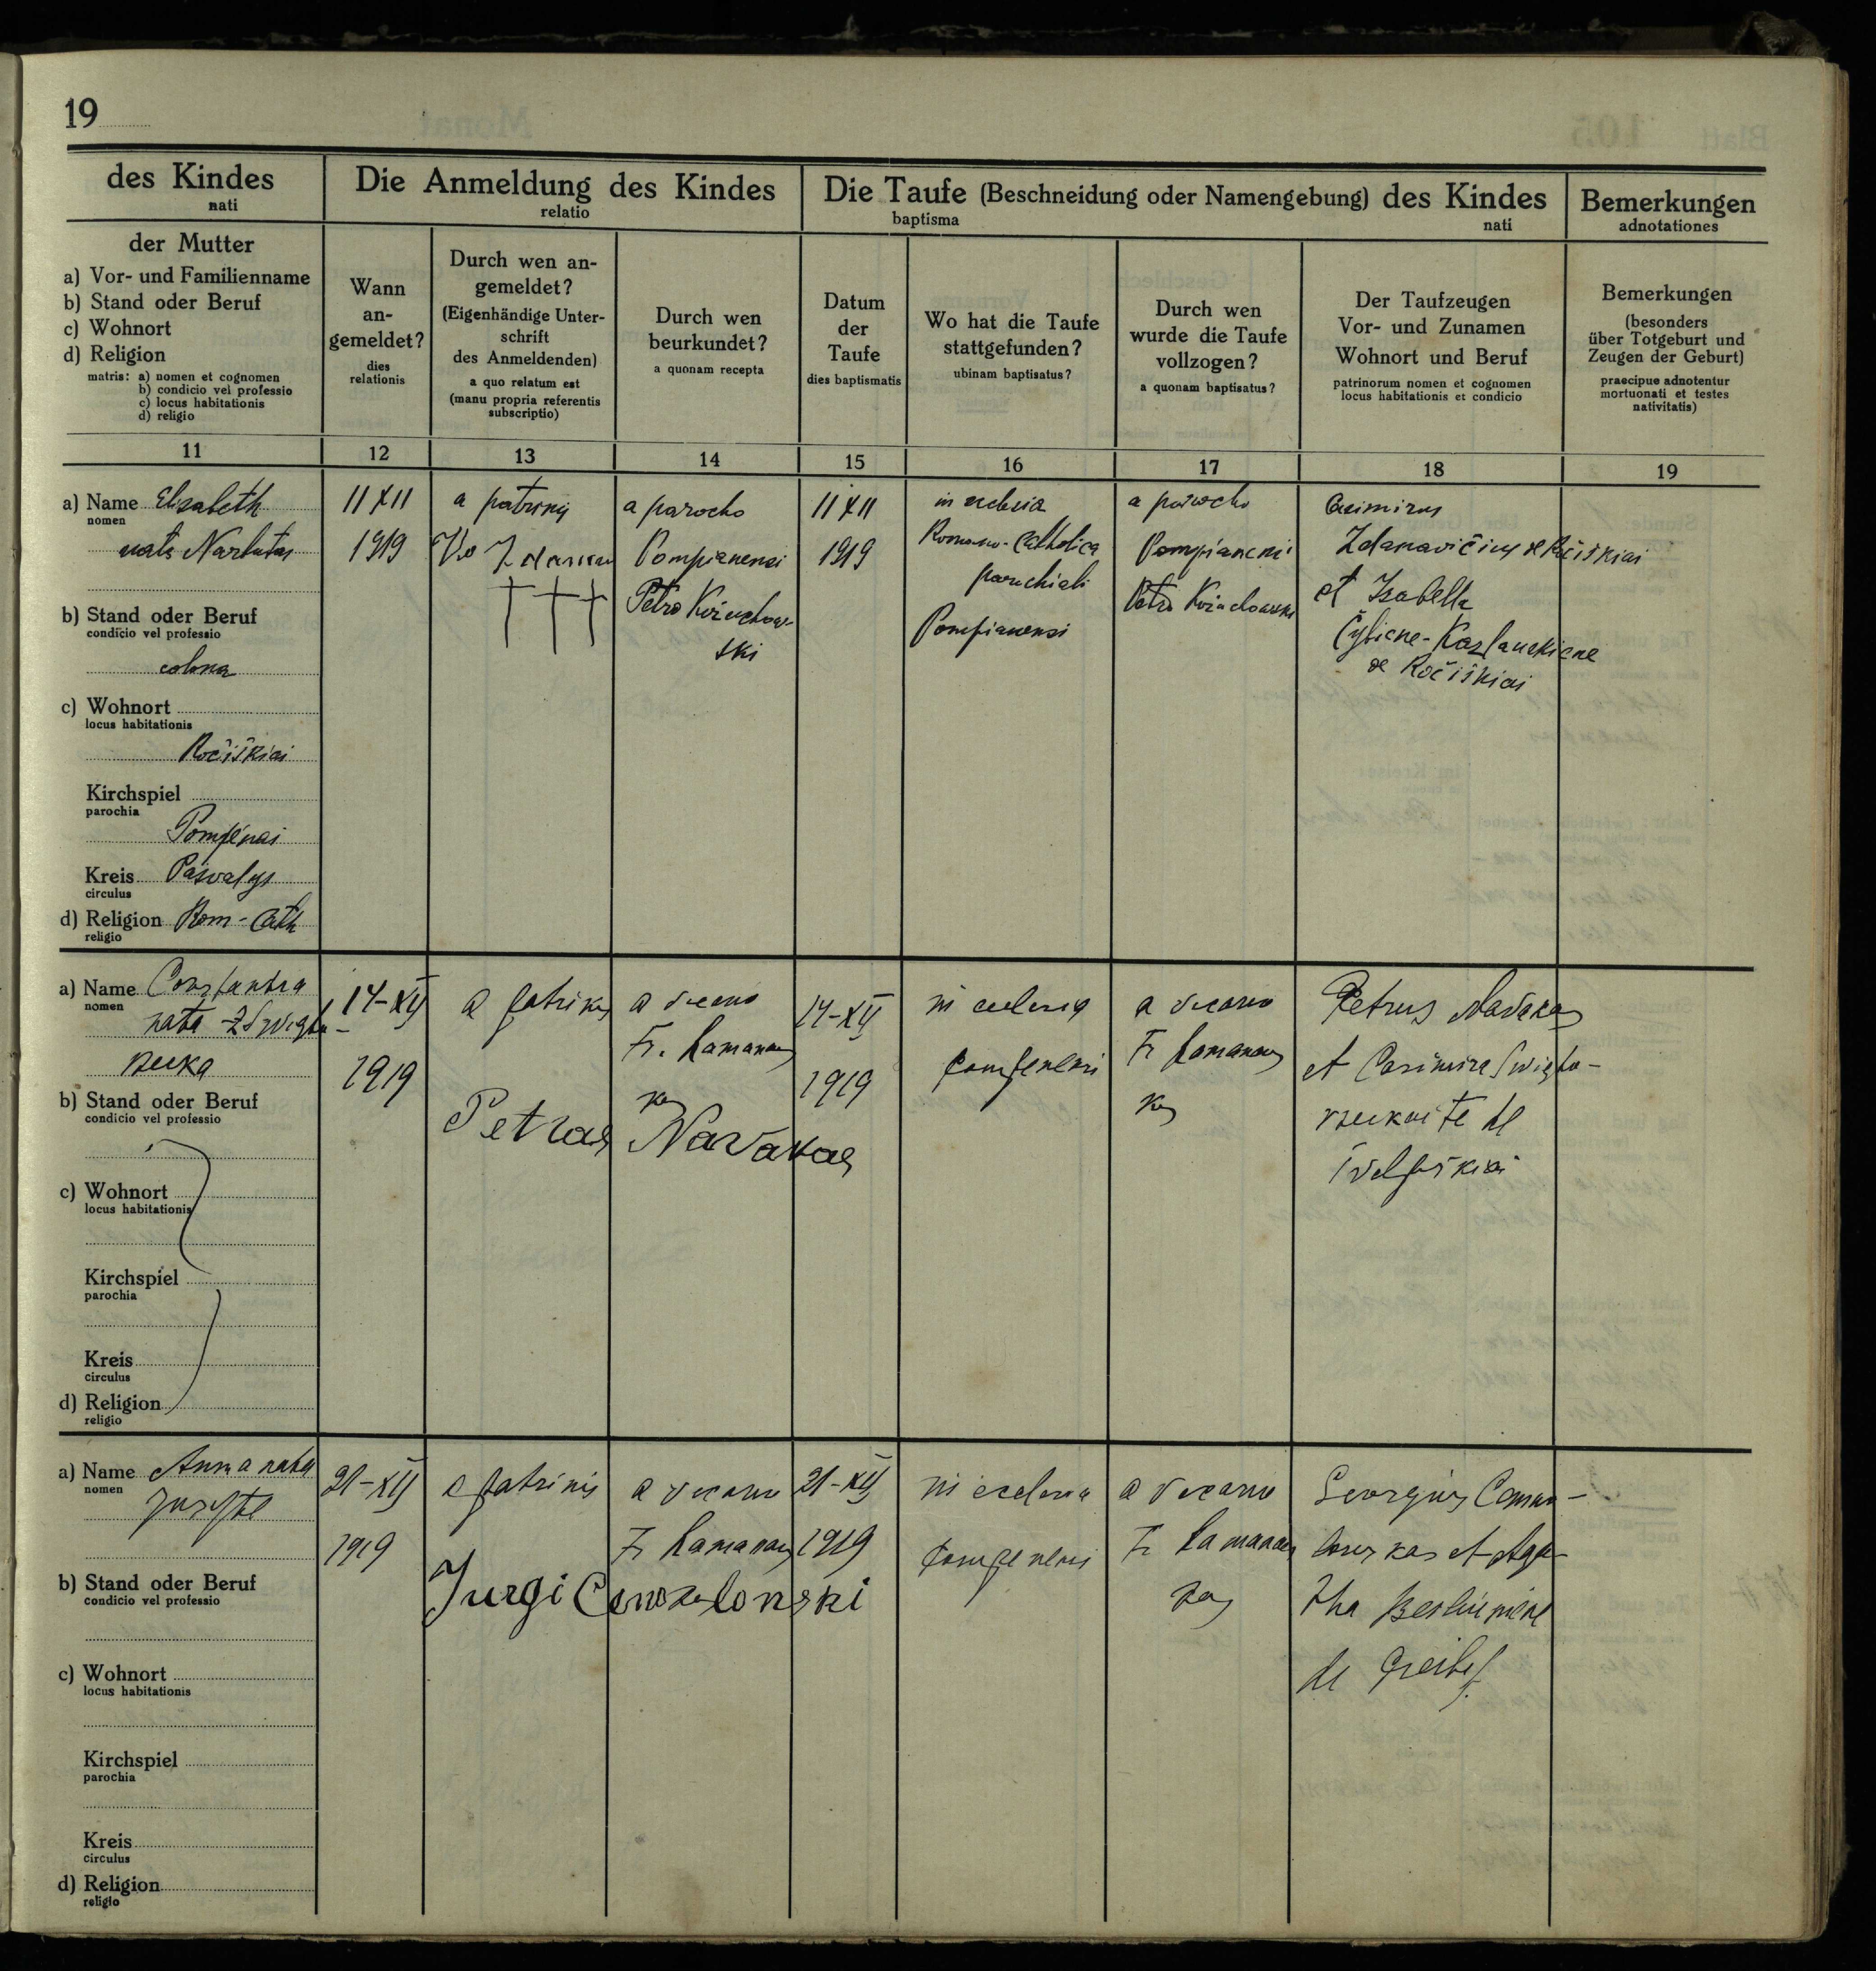 19
des Kindes
nati
Die Anmeldung des Kindes
relatio
Die Taufe (Beschneidung oder Namengebung) des Kindes
baptisma nati
Bemerkungen
adnotationes
der Mutter
a) Vor- und Familienname
b) Stand oder Beruf
c) Wohnort
d) Religion
matris: a) nomen et cognomen
b) condicio vel professio
c) locus habitationis
d) religio
Wann
an-
gemeldet?
dies
relationis
Durch wen an-
gemeldet?
(Eigenhändige Unter-
schrift
des Anmeldenden)
a quo relatum est
(manu propria referentis
subscriptio)
Durch wen
beurkundet?
a quonam recepta
Datum
der
Taufe
dies baptismatis
Wo hat die Taufe
stattgefunden?
ubinam baptisatus?
Durch wen
wurde die Taufe
vollzogen?
a quonam baptisatus?
Der Taufzeugen
Vor- und Zunamen
Wohnort und Beruf
patrinorum nomen et cognomen
locus habitationis et condicio
Bemerkungen
(besonders
über Totgeburt und
Zeugen der Geburt)
praecipue adnotentur
mortuonati et testes
nativitatis)
11 12 13 14 15 16 17 18 19
a) Name Elisabeth
nomen
nata
b) Stand oder Beruf
condicio vel professio
colona
c) Wohnort
locus habitationis
Ročiškiai
Kirchspiel
parochia
Pompėnai
Kreis Pasvalys
circulus
d) Religion Rom-Cath
religio
11 XII
1919
a patrinis
† † †
a parocho
Pompianensi
Petro Koźuchow-
ski
11 XII
1919
in eclesia
Romano-Catholica
parochiali
Pompianensi
a parocho
Pompianensi
Petro Koźuchowski
Casimirus
Zdanavičius de Ročiškiai
et Isabella
Čybiene-Kazlauskiene
de Ročiškiai
a) Name Constantia
nomen
nata
b) Stand oder Beruf
condicio vel professio
c) Wohnort
locus habitationis
Kirchspiel
parochia
Kreis
circulus
d) Religion
religio
14-XII
1919
a patrinis
Petras Navakas
a decano
Fr. Ramanaus
kas
14-XII
1919
in eclesia
a decano
Fr Ramanaus
kas
Petrus Navakas
et Casimira
de
a) Name Anna nata
nomen
b) Stand oder Beruf
condicio vel professio
c) Wohnort
locus habitationis
Kirchspiel
parochia
Kreis
circulus
d) Religion
religio
21-XII
1919
a patrinis
Jurgi
a decano
Fr Ramanaus
21-XII
1919
in eclesia
a decano
Fr Ramanaus
kas
Georgius
et Aga-
tha
de